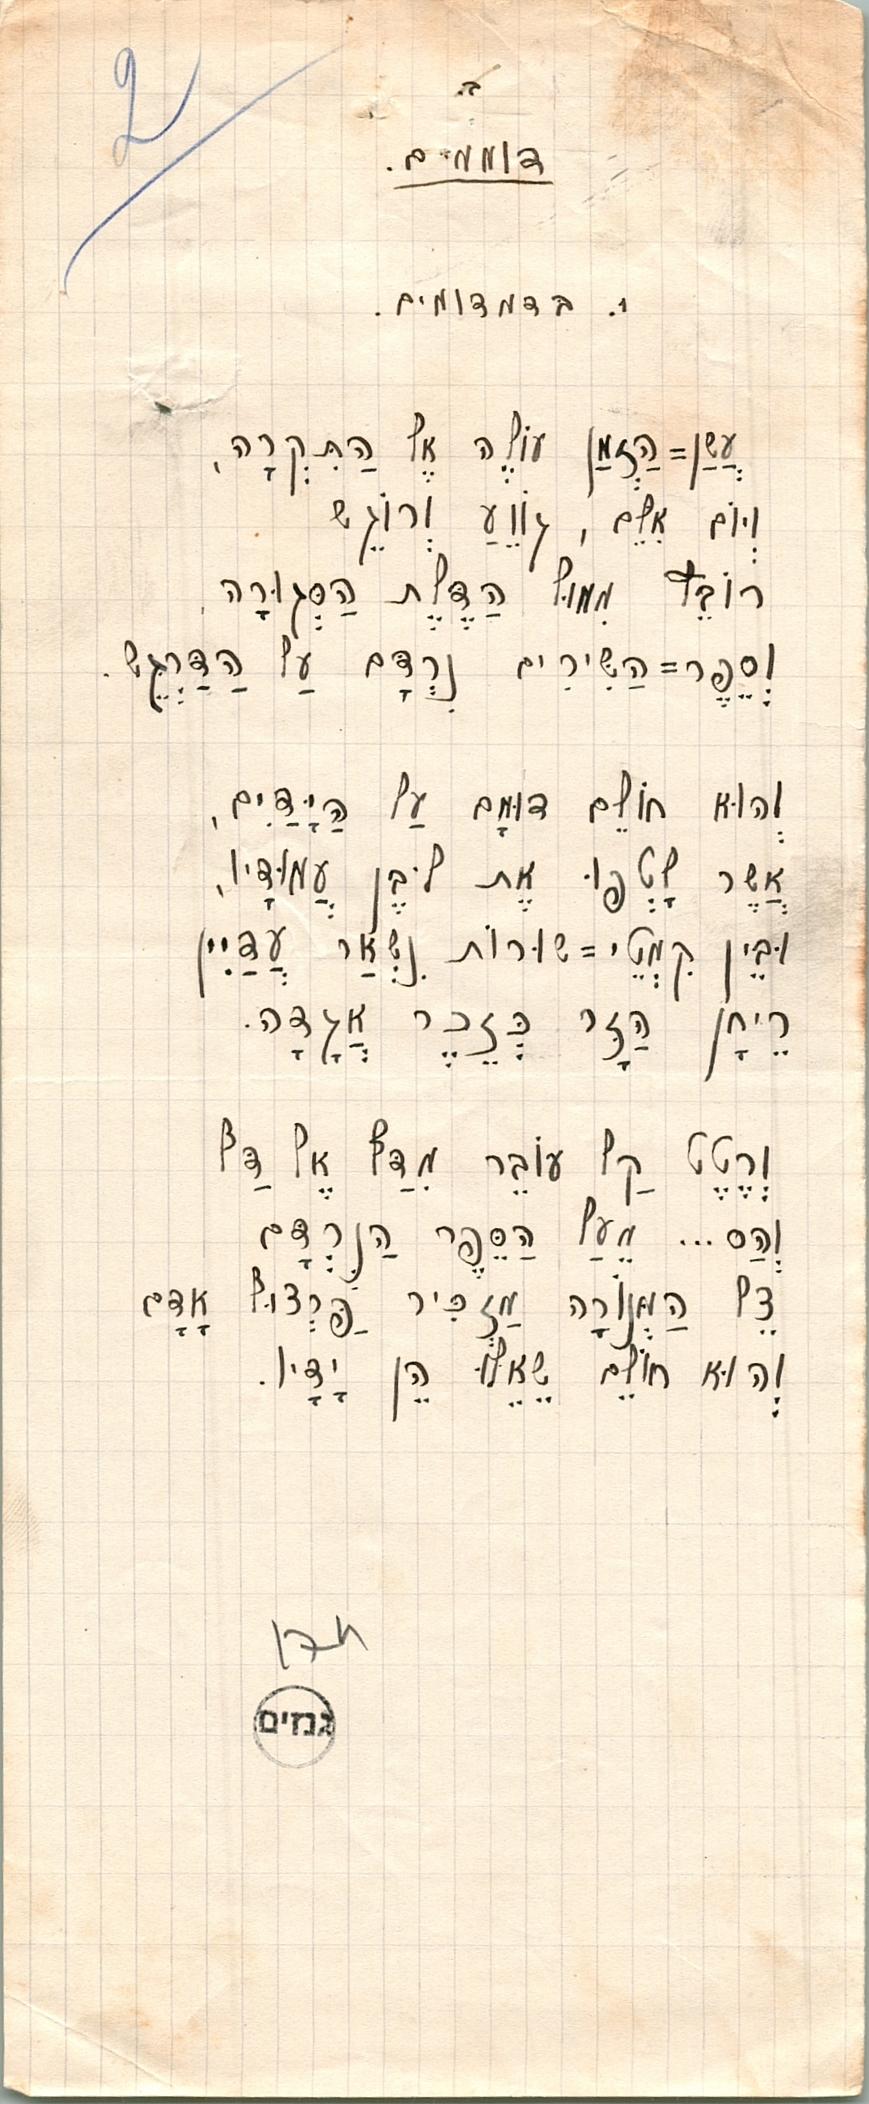 2
ב.
דוממים.
1. בדמדומים.
עֲשַׁן=הַזְּמַן עוֹלֶה אֶל הַתִּקְרָה,
וְיוֹם אִלֵּם, גּוֹוֵעַ וְרוֹגֵשׁ
רוֹבֵץ מִמּוּל הַדֶּלֶת הַסְּגוּרָה
וְסֵפֶר=הַשִּׁירִים נִרְדָּם עַל הַדַּרְגֵּשׁ.
וְהוּא חוֹלֵם דּוּמָם עַל הַיָּדַיִם,
אֲשֶׁר לָטְפוּ אֶת לֹיבֶן עֲמוּדָיו,
וּבֵין קִמְטֵי=שׁוּרוֹת נִשְׁאַר עֲדַיִין
רֵיחָן הַזָּר כְּזֵכֶר אֲגָדָה.
וְרֶטֶט קַל עוֹבֵר מִדַּף אֶל דַּף
וְהַס... מֵעַל הַסֵּפֶר הַנִּרְדָּם
צֵל הַמְּנוֹרָה מַזְכִּיר פַּרְצוּף אָדָם
וְהוּא חוֹלֵם שֶׁאֵלּוּ הֵן יָדָיו.
גנזים